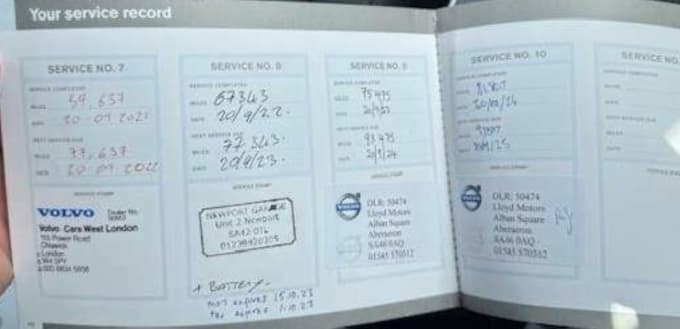 Your service record
SERVICE NO. 7
SERVICE COMPLETED
MILES 59,637
DATE 20-09-2021
NEXT SERVICE DUE
MILES 77,637
DATE 20-09-2022
SERVICE STAMP
VOLVO
Volvo Cars West London
Power Road
Chiswick
London
SERVICE NO. 8
SERVICE COMPLETED
MILES 67343
DATE 20/9/22.
NEXT SERVICE DUE
MILES 77343.
DATE 20/9/23.
SERVICE STAMP
NEWPORT GARAGE
Unit 2 Newport
SA42 0TL
+ BATTERY.
MOT expires 15.10.23
Tax expires 1.10.23
SERVICE NO. 9
SERVICE COMPLETED
MILES 75475
DATE
NEXT SERVICE DUE
MILES 93475
DATE
SERVICE STAMP
DLR: 50474
Lloyd Motors
Alban Square
Aberaeron
SA46 0AQ
01545 570512
SERVICE NO. 10
SERVICE COMPLETED
MILES
DATE
NEXT SERVICE DUE
MILES
DATE
SERVICE STAMP
DLR: 50474
Lloyd Motors
Alban Square
Aberaeron
SA46 0AQ
01545 570512
SERVICE NO.